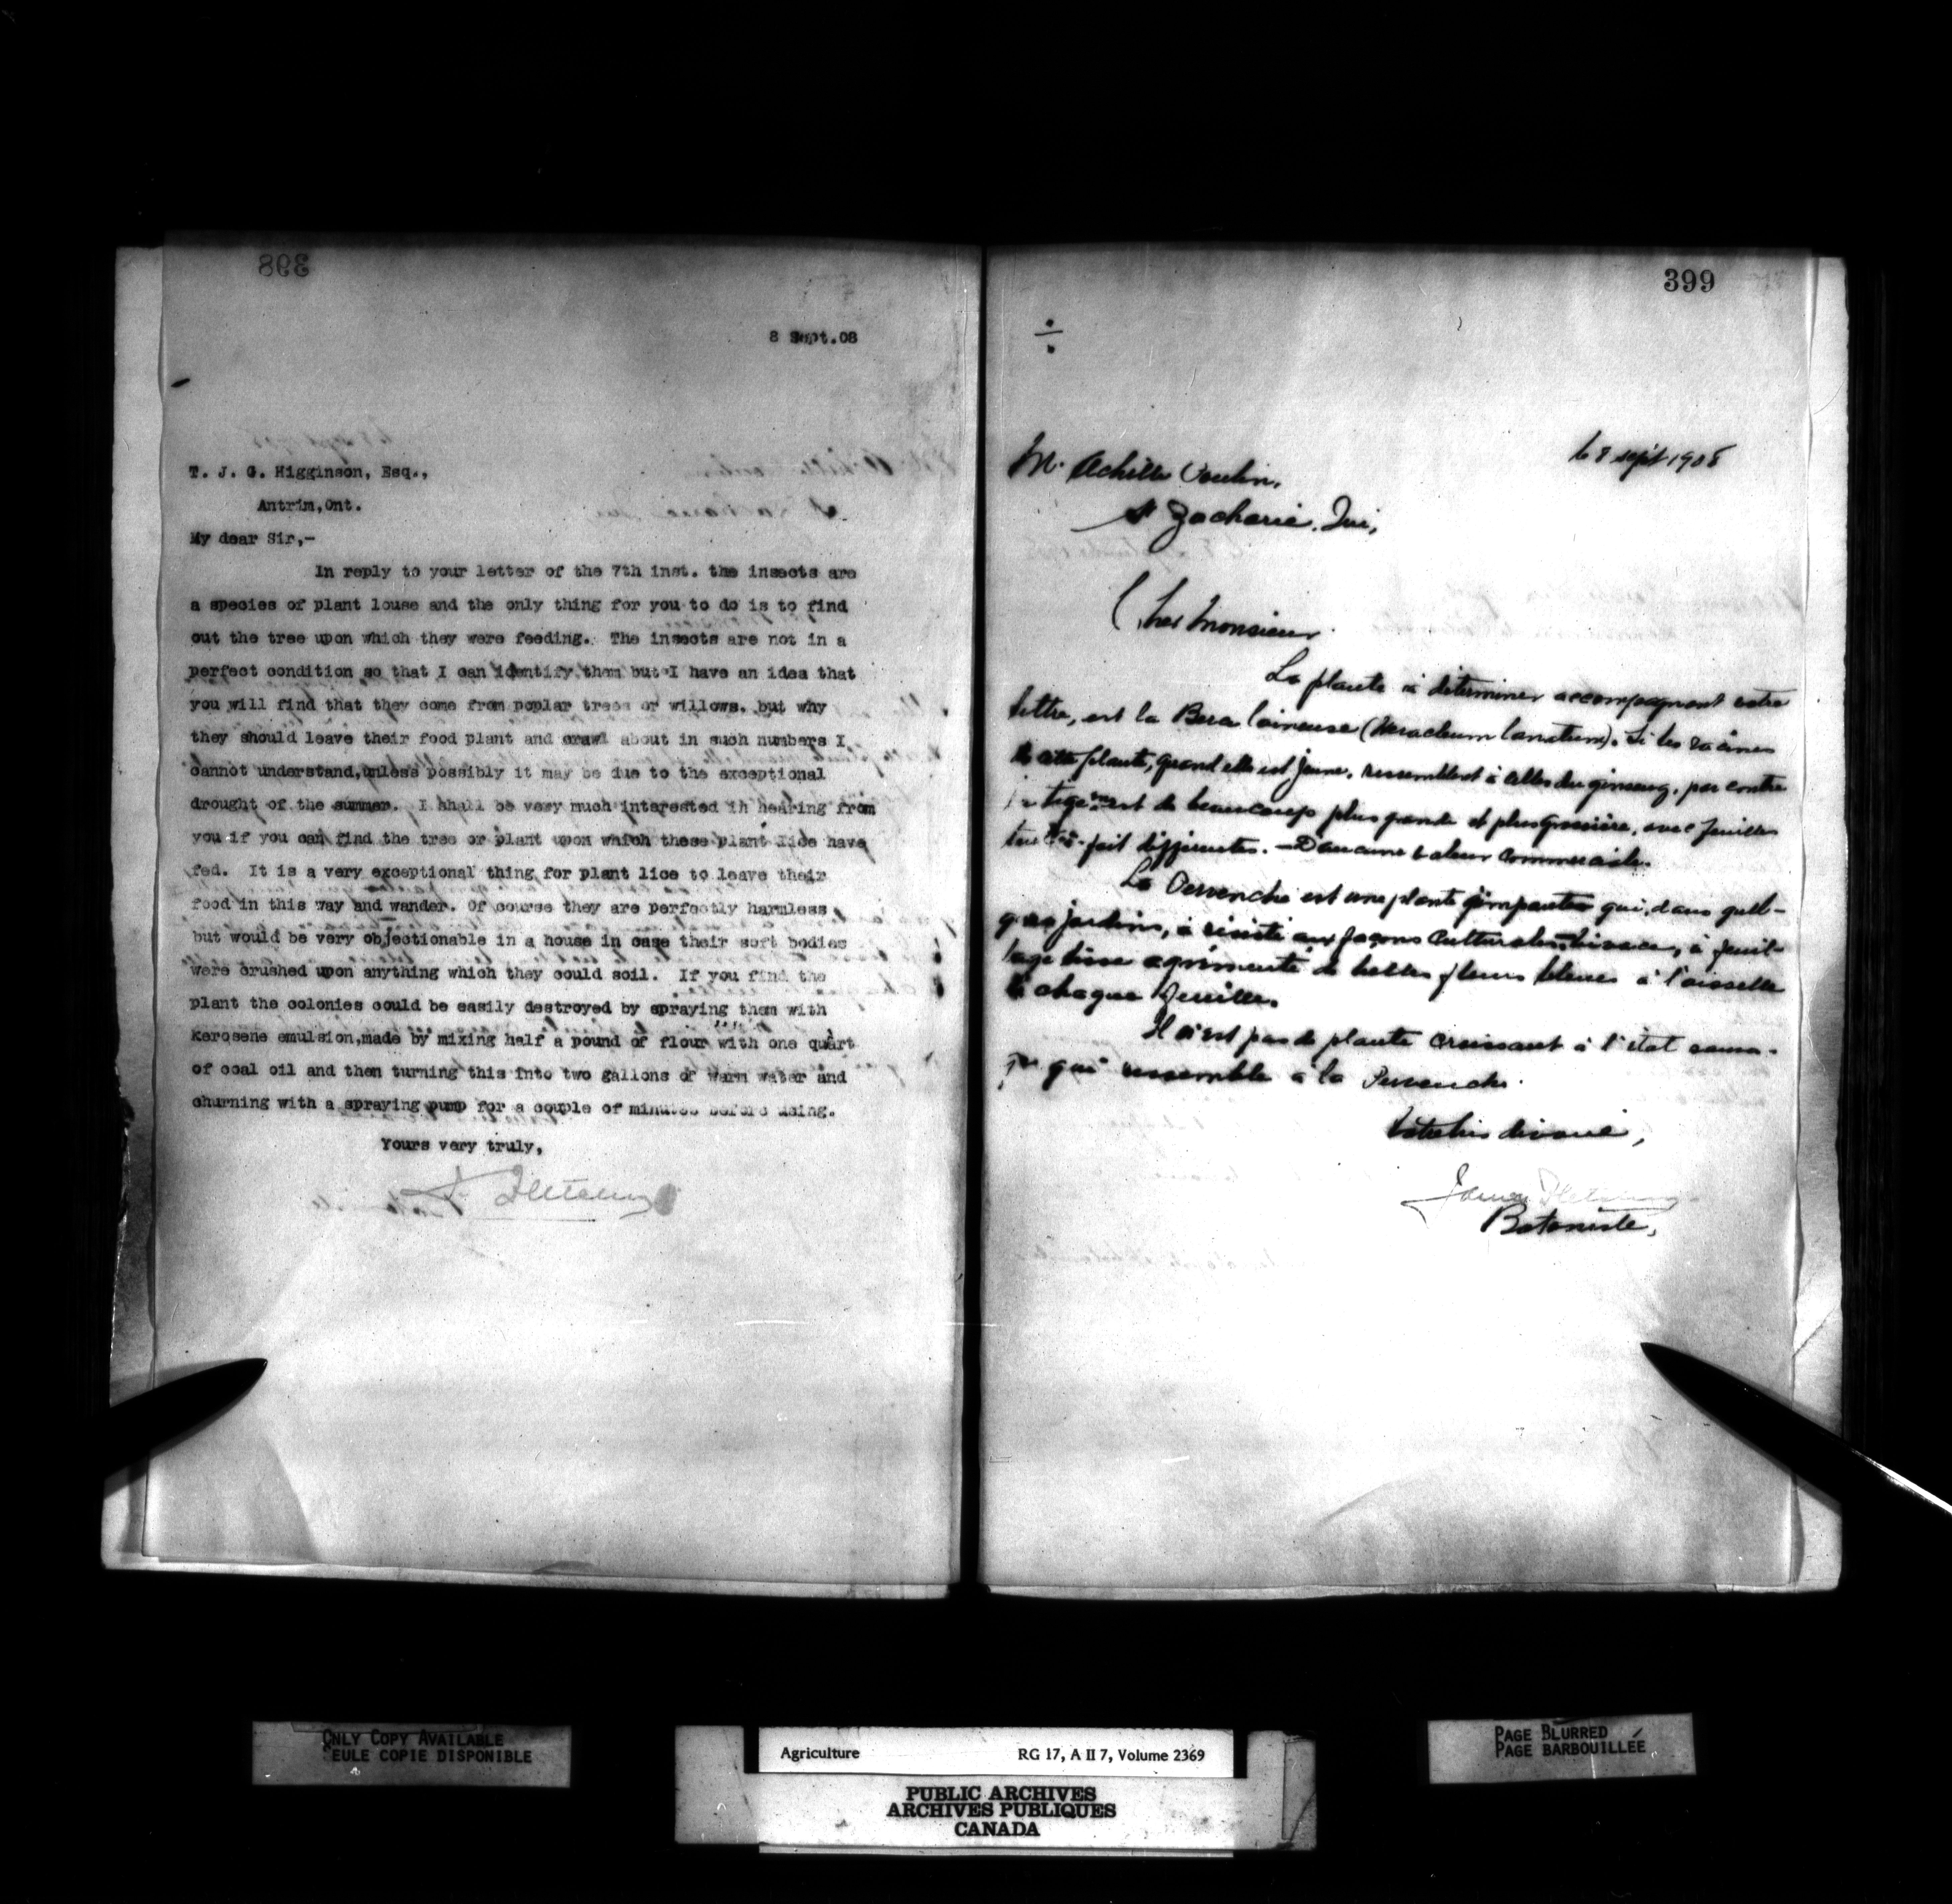 398
8 Sept.08
T. J. G. Higginson, Esq.,
Antrim,Ont.
My dear Sir,-
In reply to your letter of the 7th inst. the insects are
a species of plant louse and the only thing for you to do is to find
out the tree upon which they were feeding. The insects are not in a
perfect condition so that I can identify them but I have an idea that
you will find that they come from poplar trees or willows, but why
they should leave their food plant and crawl about in such numbers I
cannot understand,unless possibly it may be due to the exceptional
drought of the summer. I shall be very much interested in hearing from
you if you can find the tree or plant upon which these plant lice have
fed. It is a very exceptional thing for plant lice to leave their
food in this way and wander. Of course they are perfectly harmless
but would be very objectionable in a house in case their soft bodies
were crushed upon anything which they could soil. If you find the
plant the colonies could be easily destroyed by spraying them with
kerosene emulsion,made by mixing half a pound of flour with one quart
of coal oil and then turning this into two gallons of warm water and
churning with a spraying pump for a couple of minutes before using.
Yours very truly,
J. Fletcher
399
÷
le 8 sept 1908
M. Achille
St Zacharie, Que,
Cher Monsieur
La plante à déterminer accompagnant votre
lettre, est la Berce laineuse (Heracleum lanatum). Si les racines
de cette plante, quand elle est jeune, ressemblent à celles du ginseng, par contre
la tige est de beaucoup plus grande et plus grossière, avec feuilles
tout-à-fait différentes. - D'aucune valeur commerciale.
La Pervenche est une plante grimpante qui, dans quel-
ques jardins, a résisté aux façons culturales, à feuil-
lage lisse agrémenté de belles fleurs bleues à l'aisselle
de chaque feuille.
Il n'est pas de plante croissant à l'état sauva-
ge qui ressemble à la Pervenche.
Votre bien dévoué,
James Fletcher
Botaniste,
ONLY COPY AVAILABLE
SEULE COPIE DISPONIBLE
Agriculture RG 17, A II 7, Volume 2369
PUBLIC ARCHIVES
ARCHIVES PUBLIQUES
CANADA
PAGE BLURRED
PAGE BARBOUILLÉE